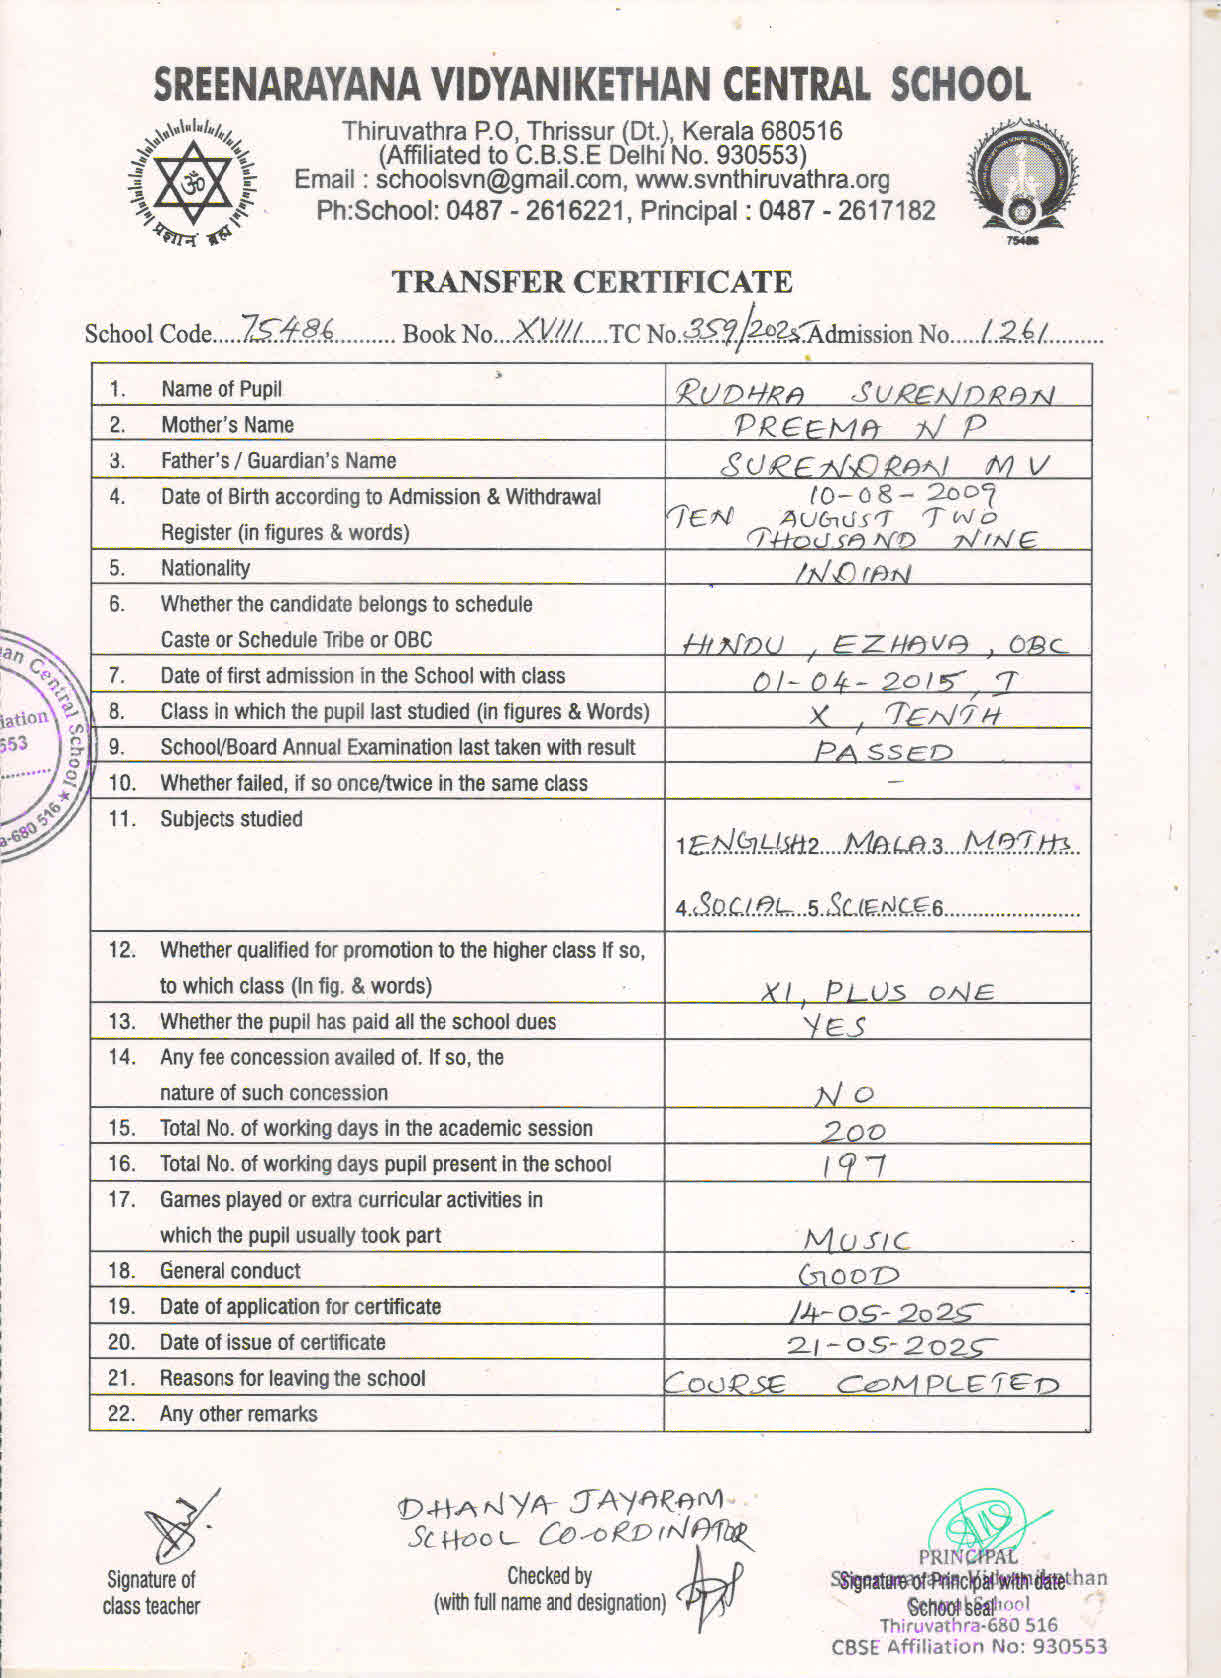 SREENARAYANA VIDYANIKETHAN CENTRAL SCHOOL
Thiruvathra P.O, Thrissur (Dt.), Kerala 680516
(Affiliated to C.B.S.E Delhi No. 930553)
Email : schoolsvn@gmail.com, www.svnthiruvathra.org
Ph:School: 0487 - 2616221, Principal : 0487 - 2617182
प्रज्ञानं ब्रह्म
75486
TRANSFER CERTIFICATE
School Code.....75486.......... Book No...XVIII....TC No.359/2025 Admission No.....1261..........
1. Name of Pupil RUDHRA SURENDRAN
2. Mother's Name PREEMA N P
3. Father's / Guardian's Name SURENDRAN M V
4. Date of Birth according to Admission & Withdrawal 10-08-2009
Register (in figures & words) TEN AUGUST TWO
THOUSAND NINE
5. Nationality INDIAN
6. Whether the candidate belongs to schedule
Caste or Schedule Tribe or OBC HINDU, EZHAVA, OBC
7. Date of first admission in the School with class 01-04-2015, I
8. Class in which the pupil last studied (in figures & Words) X, TENTH
9. School/Board Annual Examination last taken with result PASSED
10. Whether failed, if so once/twice in the same class -
11. Subjects studied
1 ENGLISH 2 MALA 3 MATHS
4. SOCIAL 5. SCIENCE 6.
12. Whether qualified for promotion to the higher class If so,
to which class (In fig. & words) XI, PLUS ONE
13. Whether the pupil has paid all the school dues YES
14. Any fee concession availed of. If so, the
nature of such concession NO
15. Total No. of working days in the academic session 200
16. Total No. of working days pupil present in the school 197
17. Games played or extra curricular activities in
which the pupil usually took part MUSIC
18. General conduct GOOD
19. Date of application for certificate 14-05-2025
20. Date of issue of certificate 21-05-2025
21. Reasons for leaving the school COURSE COMPLETED
22. Any other remarks
an Central School
iation
553
a-680 516
DHANYA JAYARAM
SCHOOL CO-ORDINATOR
Signature of
class teacher
Checked by
(with full name and designation)
PRINCIPAL
Sreenarayana Vidyanikethan
Signature of Principal with date
Central School
School seal
Thiruvathra-680 516
CBSE Affiliation No: 930553